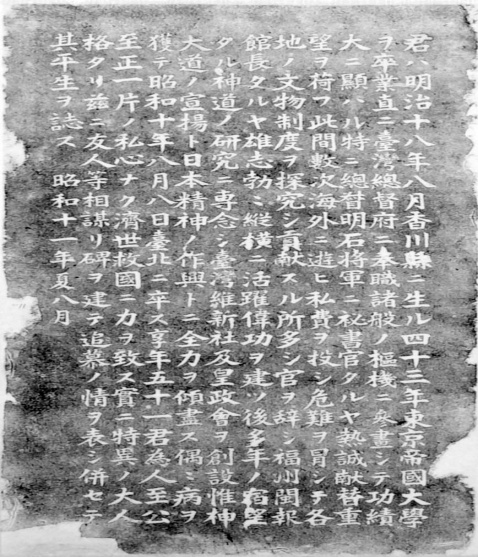 君ハ明治十八年八月香川縣ニ生ル四十三年東京帝國大學
ヲ卒業直ニ臺灣總督府ニ奉職諸般ノ樞機ニ參畫シテ功績
大ニ顯ハル特ニ總督明石將軍ニ祕書官タルヤ熱誠獻替重
望ヲ荷フ此間數次海外ニ遊ヒ私費ヲ投シ危難ヲ冒シテ各
地ノ文物制度ヲ探究シ貢献スル所多シ官ヲ辭シ福州閩報
館長タルヤ雄志勃〻縱橫ニ活躍偉功ヲ建ツ後多年ノ宿望
タル神道ノ研究ニ專念シ臺灣維新社及皇政會ヲ創設惟神
大道ノ宣揚ト日本精神ノ作興トニ全力ヲ傾盡ス偶〻病ヲ
獲テ昭和十年八月八日臺北ニ卒ス享年五十一君為人至公
至正一片ノ私心ナク濟世救國ニ力ヲ致ス實ニ特異ノ大人
格タリ茲ニ友人等相謀リ碑ヲ建テ追慕ノ情ヲ表シ併セテ
其平生ヲ誌ス 昭和十一年夏八月